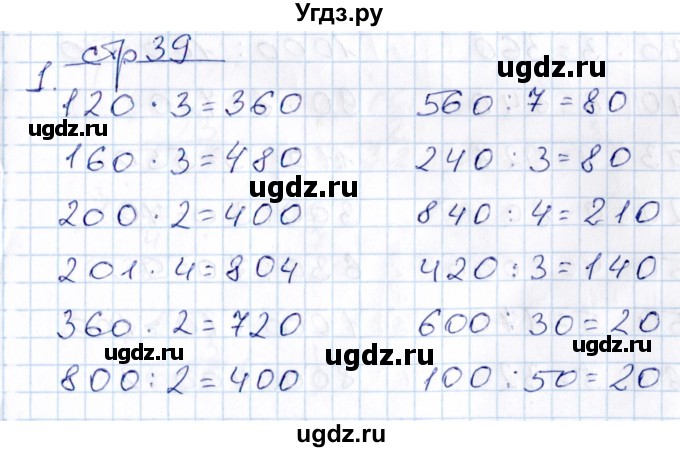 Угдз.ру
стр 39
1.
120 · 3 = 360 560 : 7 = 80
ugdz.ru ugdz.ru
160 · 3 = 480 240 : 3 = 80
ugdz.ru
200 · 2 = 400 840 : 4 = 210
ugdz.ru
201 · 4 = 804 420 : 3 = 140
360 · 2 = 720 600 : 30 = 20
ugdz.ru ugdz.ru ugdz.ru
800 : 2 = 400 100 : 50 = 20
ugdz.ru